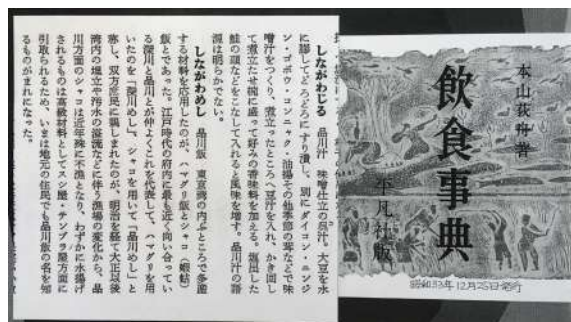 しながわじる　品川汁　味噌仕立の呉汁。大豆を水
に膠してどろどろにすり潰し、別にダイコン・ニンジ
ン・ゴボウ・コンニャク・油揚その他季節の茸などで味
噌汁をつくり、煮立ったところへ豆汁を入れ、かき回し
て煮立たせ椀に盛って好みの香味料を加える。塩出した
鮭の頭などをこなして入れると風味を増す。品川汁の語
源は明らかでない。
しながわめし　品川飯　東京湾の内ぶところで多産
する材料を応用したのが、ハマグリ飯とシャコ（蝦蛄）
飯とであった。江戸時代の府内に最も近く向い合ってい
る深川と品川とが仲よくこれを代表して、ハマグリを用
いたのを「深川めし」、シャコを用いて「品川めし」と
称し、双方庶民に親しまれたのが、明治を経て大正以後
湾内の埋立や汚水の溢流などに伴う漁場の変化から、品
川方面のシャコは近年殊に不漁となり、わずかに水揚げ
されるものは高級材料としてスシ屋・テンプラ屋方面に
引取られるため、いまは地元の住民でも品川飯の名を知
るものがまれになった。
本山荻舟著
飲食事典
平凡社版
昭和33年12月25日発行